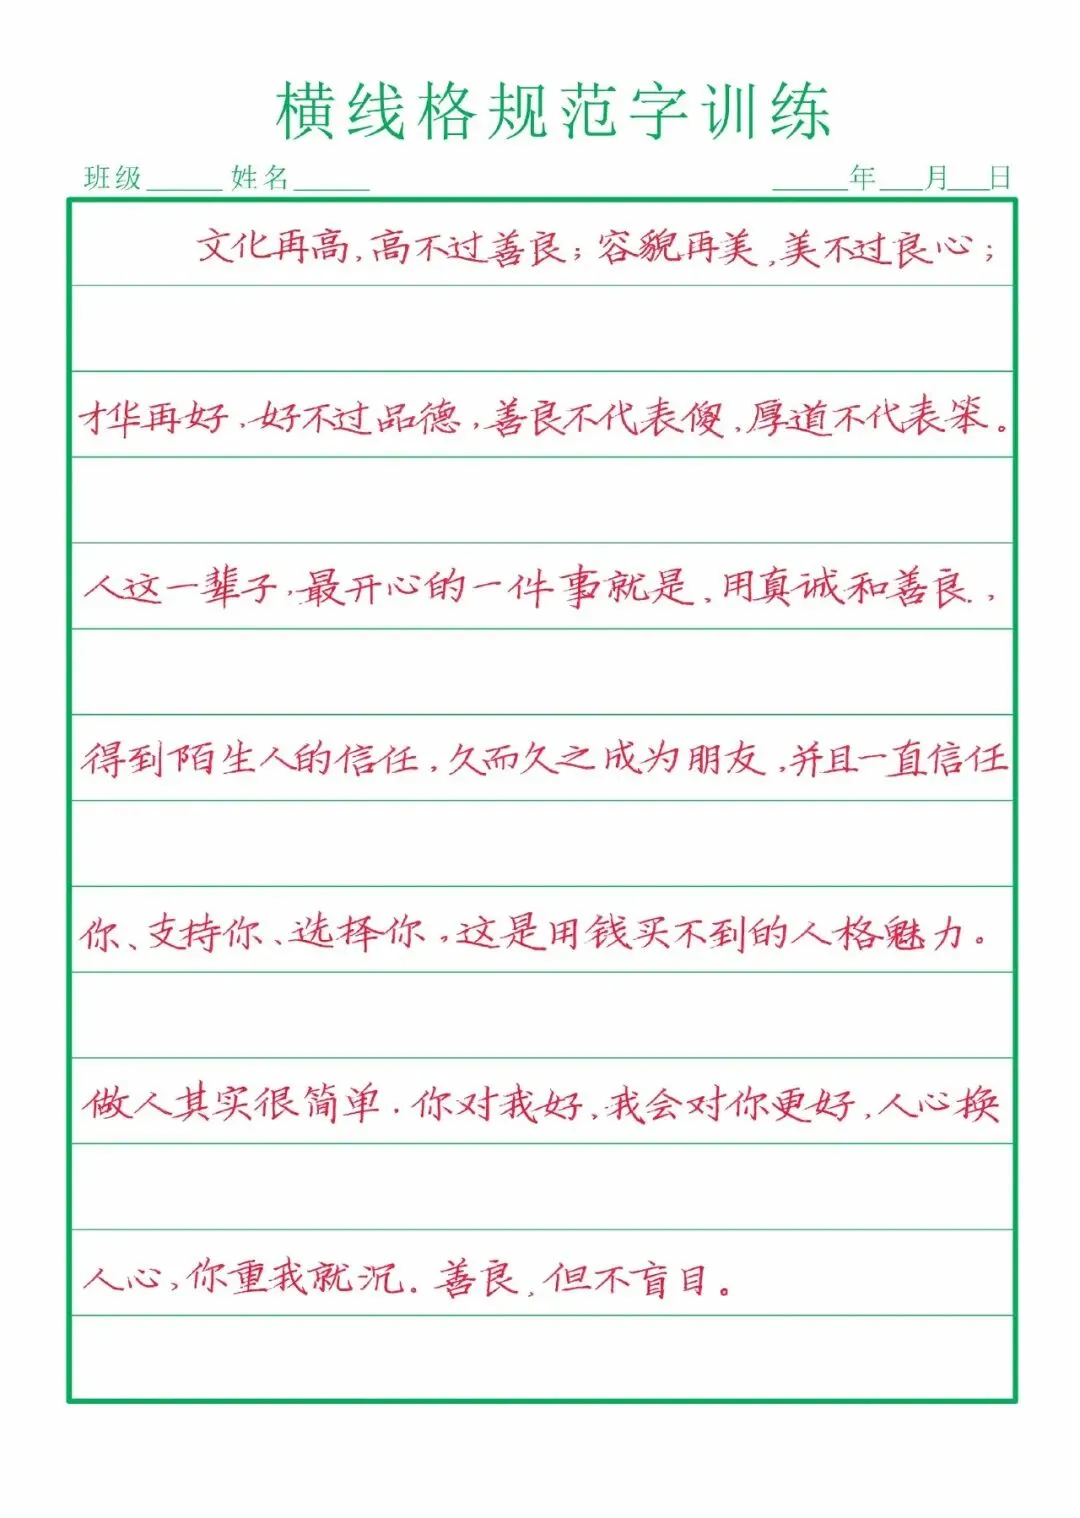 横线格规范字训练
班级______ 姓名______ ______年___月___日
文化再高,高不过善良;容貌再美,美不过良心;
才华再好,好不过品德,善良不代表傻,厚道不代表笨。
人这一辈子,最开心的一件事就是,用真诚和善良,
得到陌生人的信任,久而久之成为朋友,并且一直信任
你、支持你、选择你,这是用钱买不到的人格魅力。
做人其实很简单,你对我好,我会对你更好,人心换
人心,你重我就沉。善良,但不盲目。